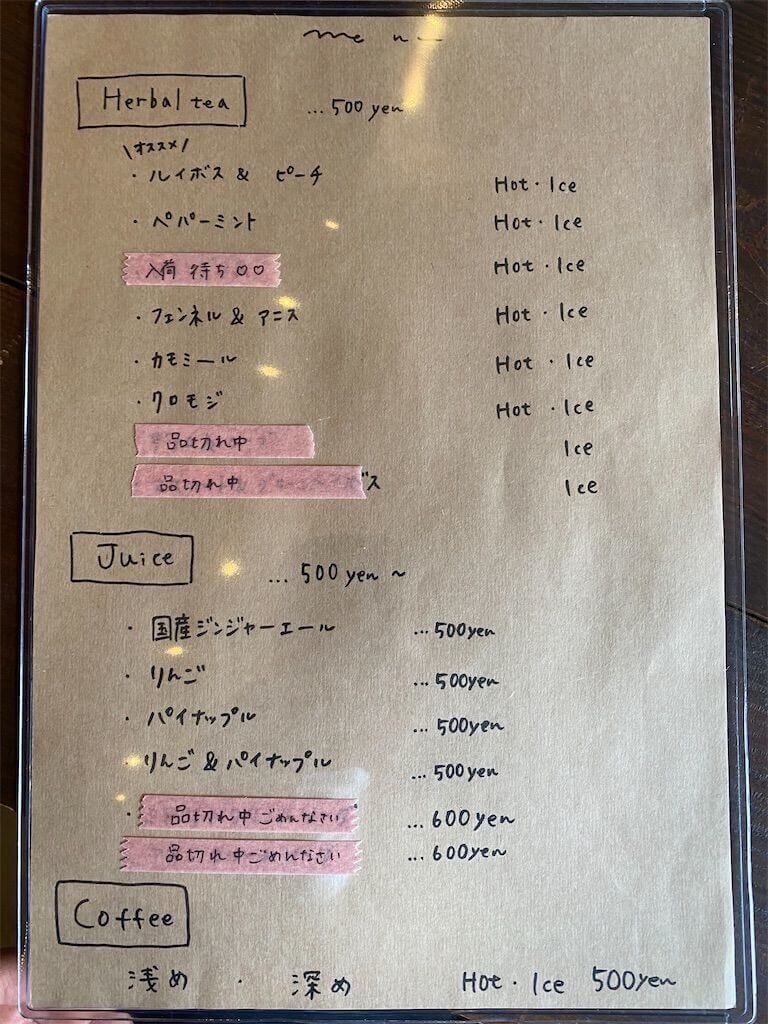 menu
Herbal tea ... 500 yen
\オススメ/
・ルイボス & ピーチ Hot・Ice
・ペパーミント Hot・Ice
入荷待ち♡♡ Hot・Ice
・フェンネル & アニス Hot・Ice
・カモミール Hot・Ice
・クロモジ Hot・Ice
品切れ中 Ice
品切れ中 ス Ice
Juice ... 500 yen ~
・国産ジンジャーエール ... 500yen
・りんご ... 500yen
・パイナップル ... 500yen
・りんご & パイナップル ... 500yen
・品切れ中ごめんなさい ... 600yen
品切れ中ごめんなさい ... 600yen
Coffee
浅め ・ 深め Hot・Ice 500yen